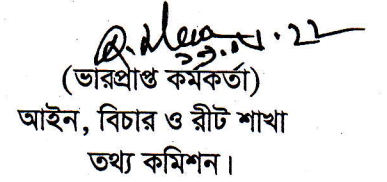 (ভারপ্রাপ্ত কর্মকর্তা)
আইন, বিচার ও রীট শাখা
তথ্য কমিশন।